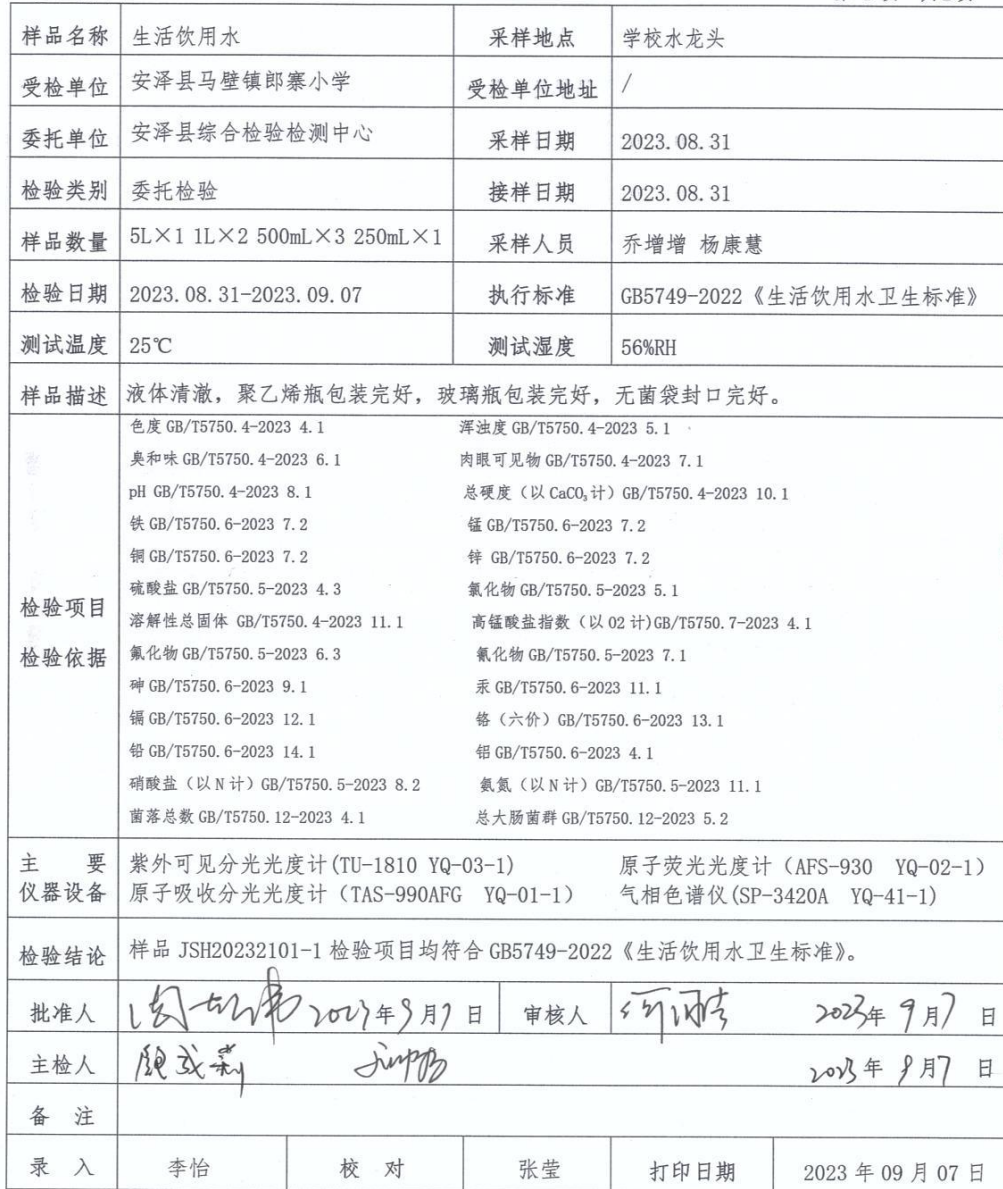 样品名称 生活饮用水 采样地点 学校水龙头
受检单位 安泽县马壁镇郎寨小学 受检单位地址 /
委托单位 安泽县综合检验检测中心 采样日期 2023.08.31
检验类别 委托检验 接样日期 2023.08.31
样品数量 5L×1 1L×2 500mL×3 250mL×1 采样人员 乔增增 杨康慧
检验日期 2023.08.31-2023.09.07 执行标准 GB5749-2022《生活饮用水卫生标准》
测试温度 25℃ 测试湿度 56%RH
样品描述 液体清澈，聚乙烯瓶包装完好，玻璃瓶包装完好，无菌袋封口完好。
检验项目
检验依据
色度 GB/T5750.4-2023 4.1 浑浊度 GB/T5750.4-2023 5.1
臭和味 GB/T5750.4-2023 6.1 肉眼可见物 GB/T5750.4-2023 7.1
pH GB/T5750.4-2023 8.1 总硬度（以 CaCO₃计）GB/T5750.4-2023 10.1
铁 GB/T5750.6-2023 7.2 锰 GB/T5750.6-2023 7.2
铜 GB/T5750.6-2023 7.2 锌 GB/T5750.6-2023 7.2
硫酸盐 GB/T5750.5-2023 4.3 氯化物 GB/T5750.5-2023 5.1
溶解性总固体 GB/T5750.4-2023 11.1 高锰酸盐指数（以 O2 计)GB/T5750.7-2023 4.1
氟化物 GB/T5750.5-2023 6.3 氰化物 GB/T5750.5-2023 7.1
砷 GB/T5750.6-2023 9.1 汞 GB/T5750.6-2023 11.1
镉 GB/T5750.6-2023 12.1 铬（六价）GB/T5750.6-2023 13.1
铅 GB/T5750.6-2023 14.1 铝 GB/T5750.6-2023 4.1
硝酸盐（以 N 计）GB/T5750.5-2023 8.2 氨氮（以 N 计）GB/T5750.5-2023 11.1
菌落总数 GB/T5750.12-2023 4.1 总大肠菌群 GB/T5750.12-2023 5.2
主 要
仪器设备
紫外可见分光光度计(TU-1810 YQ-03-1) 原子荧光光度计（AFS-930 YQ-02-1）
原子吸收分光光度计（TAS-990AFG YQ-01-1） 气相色谱仪(SP-3420A YQ-41-1)
检验结论 样品 JSH20232101-1 检验项目均符合 GB5749-2022《生活饮用水卫生标准》。
批准人 2023年9月7日 审核人 2023年9月7日
主检人 2023年9月7日
备 注
录 入 李怡 校 对 张莹 打印日期 2023 年 09 月 07 日